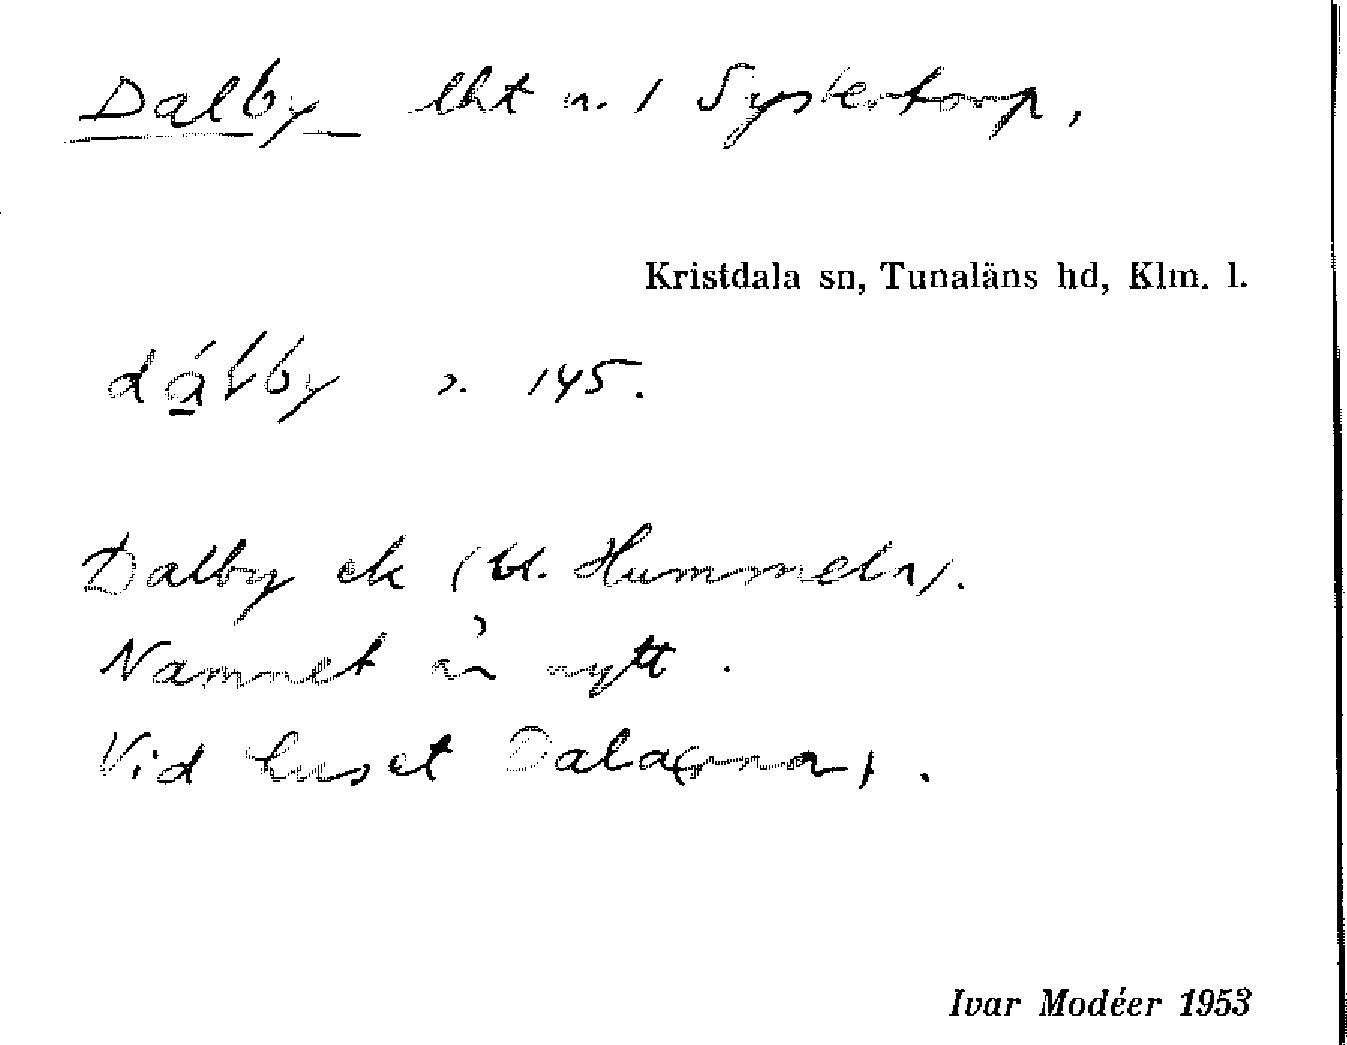 Dalby lht n. 1 Systertorp,
Kristdala sn, Tunaläns hd, Klm. l.
dálby s. 145.
Dalby ek (bl. Hummeln).
Namnet är nytt.
Vid huset Dala(rna).
Ivar Modéer 1953